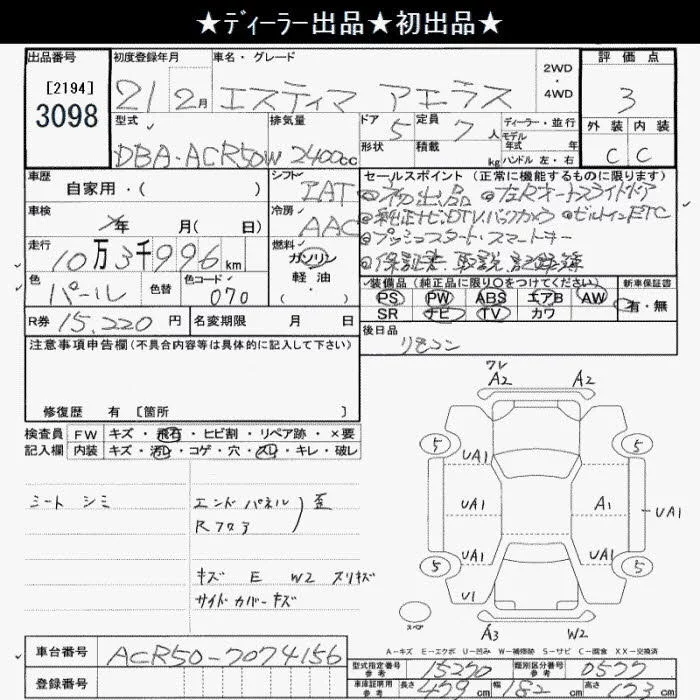 ★ﾃﾞｨｰﾗｰ出品★初出品★
出品番号 初度登録年月 車名・グレード 2WD・4WD 評価点
[2194]
3098
21 2月 エスティマ アエラス 3
型式 排気量 ドア 定員 ディーラー・並行 外装 内装
DBA-ACR50W 2400cc 5 7人 モデル年式 年式
形状 積載 kg ハンドル 左・右 C C
車歴 自家用・( ) シフト IAT
セールスポイント (正常に機能するものに限ります)
◎初出品 ◎左Rオートスライドドア
車検 年 月( 日) 冷房 AAC
◎純正ナビ,DTV,バックカメラ ◎ビルトインETC
◎プッシュスタート・スマートキー
◎保証書 取説 記録簿
走行 10万3千996km 燃料 ガソリン 軽油 ( )
色 パール 色替 色コード 070
装備品 (純正品に限り○をつけてください) 新車保証書
PS PW ABS エアB AW 有・無
SR ナビ TV カワ
R券 15,220円 名変期限 月 日
後日品 リモコン
注意事項申告欄(不具合内容等は具体的に記入して下さい)
修復歴 有 [箇所 ]
検査員 FW キズ・飛石・ヒビ割・リペア跡・×要
記入欄 内装 キズ・汚れ・コゲ・穴・スレ・キレ・破レ
シート シミ
エンドパネル 歪
キズ E W2 スリキズ
サイドカバーキズ
ワレ
A2 A2
5 5
UA1
UA1 A1 UA1
UA1 UA1
5 5
U1
スペア
A3 W2
A-キズ E-エクボ U-凹み W-補修跡 S-サビ C-腐食 XX-交換済
車台番号 ACR50-7074156
型式指定番号 参考 15270 類別区分番号 参考 0577
登録番号
車庫証明用 参考 長さ 479cm 幅 182cm 高さ 173cm